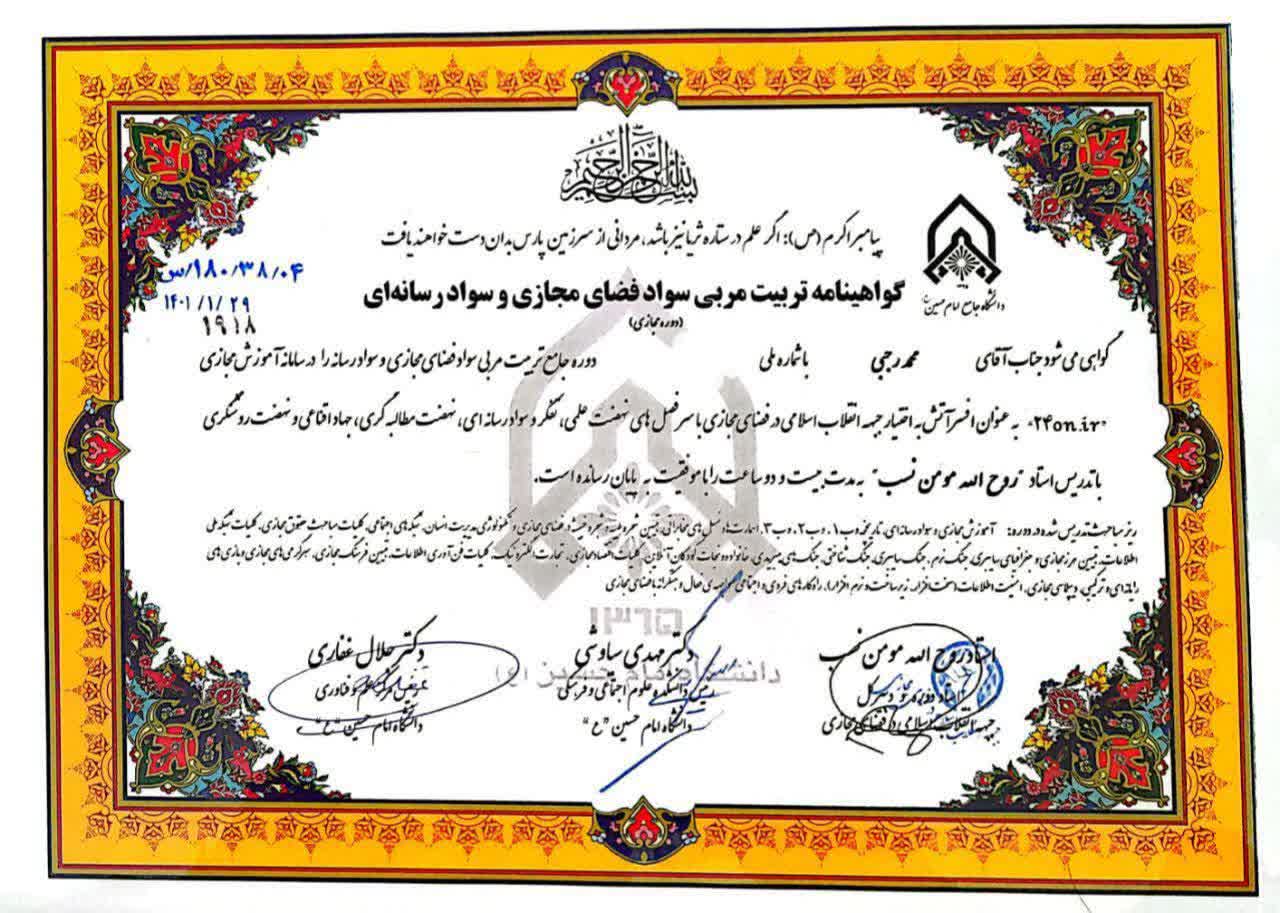 بسم الله الرحمن الرحیم
پیامبر اکرم (ص): اگر علم در ستاره ثریا نیز باشد، مردانی از سرزمین پارس بدان دست خواهند یافت
دانشگاه جامع امام حسین
۱۸۰/۳۸/۰۴/س
۱۴۰۱/۱/۲۹
۱۹۱۸
گواهینامه تربیت مربی سواد فضای مجازی و سواد رسانه‌ای
(دوره مجازی)
گواهی می شود جناب آقای محمد رجبی با شماره ملی دوره جامع تربیت مربی سواد فضای مجازی و سواد رسانه را در سامانه آموزش مجازی
"۲۴on.ir" به عنوان افسر آتش به اختیار جبهه انقلاب اسلامی در فضای مجازی با سرفصل های نهضت علمی، تفکر و سواد رسانه ای، نهضت مطالبه گری، جهاد اقناعی و نهضت روشنگری
با تدریس استاد "روح الله مومن نسب" به مدت بیست و دو ساعت را با موفقیت به پایان رسانده است.
ریز مباحث تدریس شده در دوره: آموزش مجازی و سواد رسانه‌ای، تاریخچه وب ۱، وب ۲، وب ۳، فضای مجازی و مدیریت انسان، شبکه های اجتماعی، کلیات مباحث حقوق مجازی، کلیات شبکه ملی
اطلاعات، تبیین مرز مجازی و جغرافیای سایبری، جنگ نرم، جنگ سایبری، جنگ شناختی، جنگ های هیبریدی، خانواده و نجات کودکان آنلاین، کلیات اقتصاد مجازی، تجارت الکترونیک، کلیات فن آوری اطلاعات، تبیین فرهنگ مجازی، سرگرمی های مجازی و بازی های
رایانه‌ای و ترکیبی، دیپلماسی مجازی، امنیت اطلاعات (سخت افزار، زیرساخت و نرم افزار)، راهکارهای فردی و اجتماعی فضای مجازی
۱۳۶۵
دانشگاه امام حسین (ع)
استاد روح الله مومن نسب
استاد دوره و دبیر کل
جبهه انقلاب اسلامی در فضای مجازی
دکتر مهدی ساوشی
رئیس دانشکده علوم اجتماعی و فرهنگی
دانشگاه امام حسین "ع"
دکتر جلال غفاری
علم و فناوری
دانشگاه امام حسین "ع"